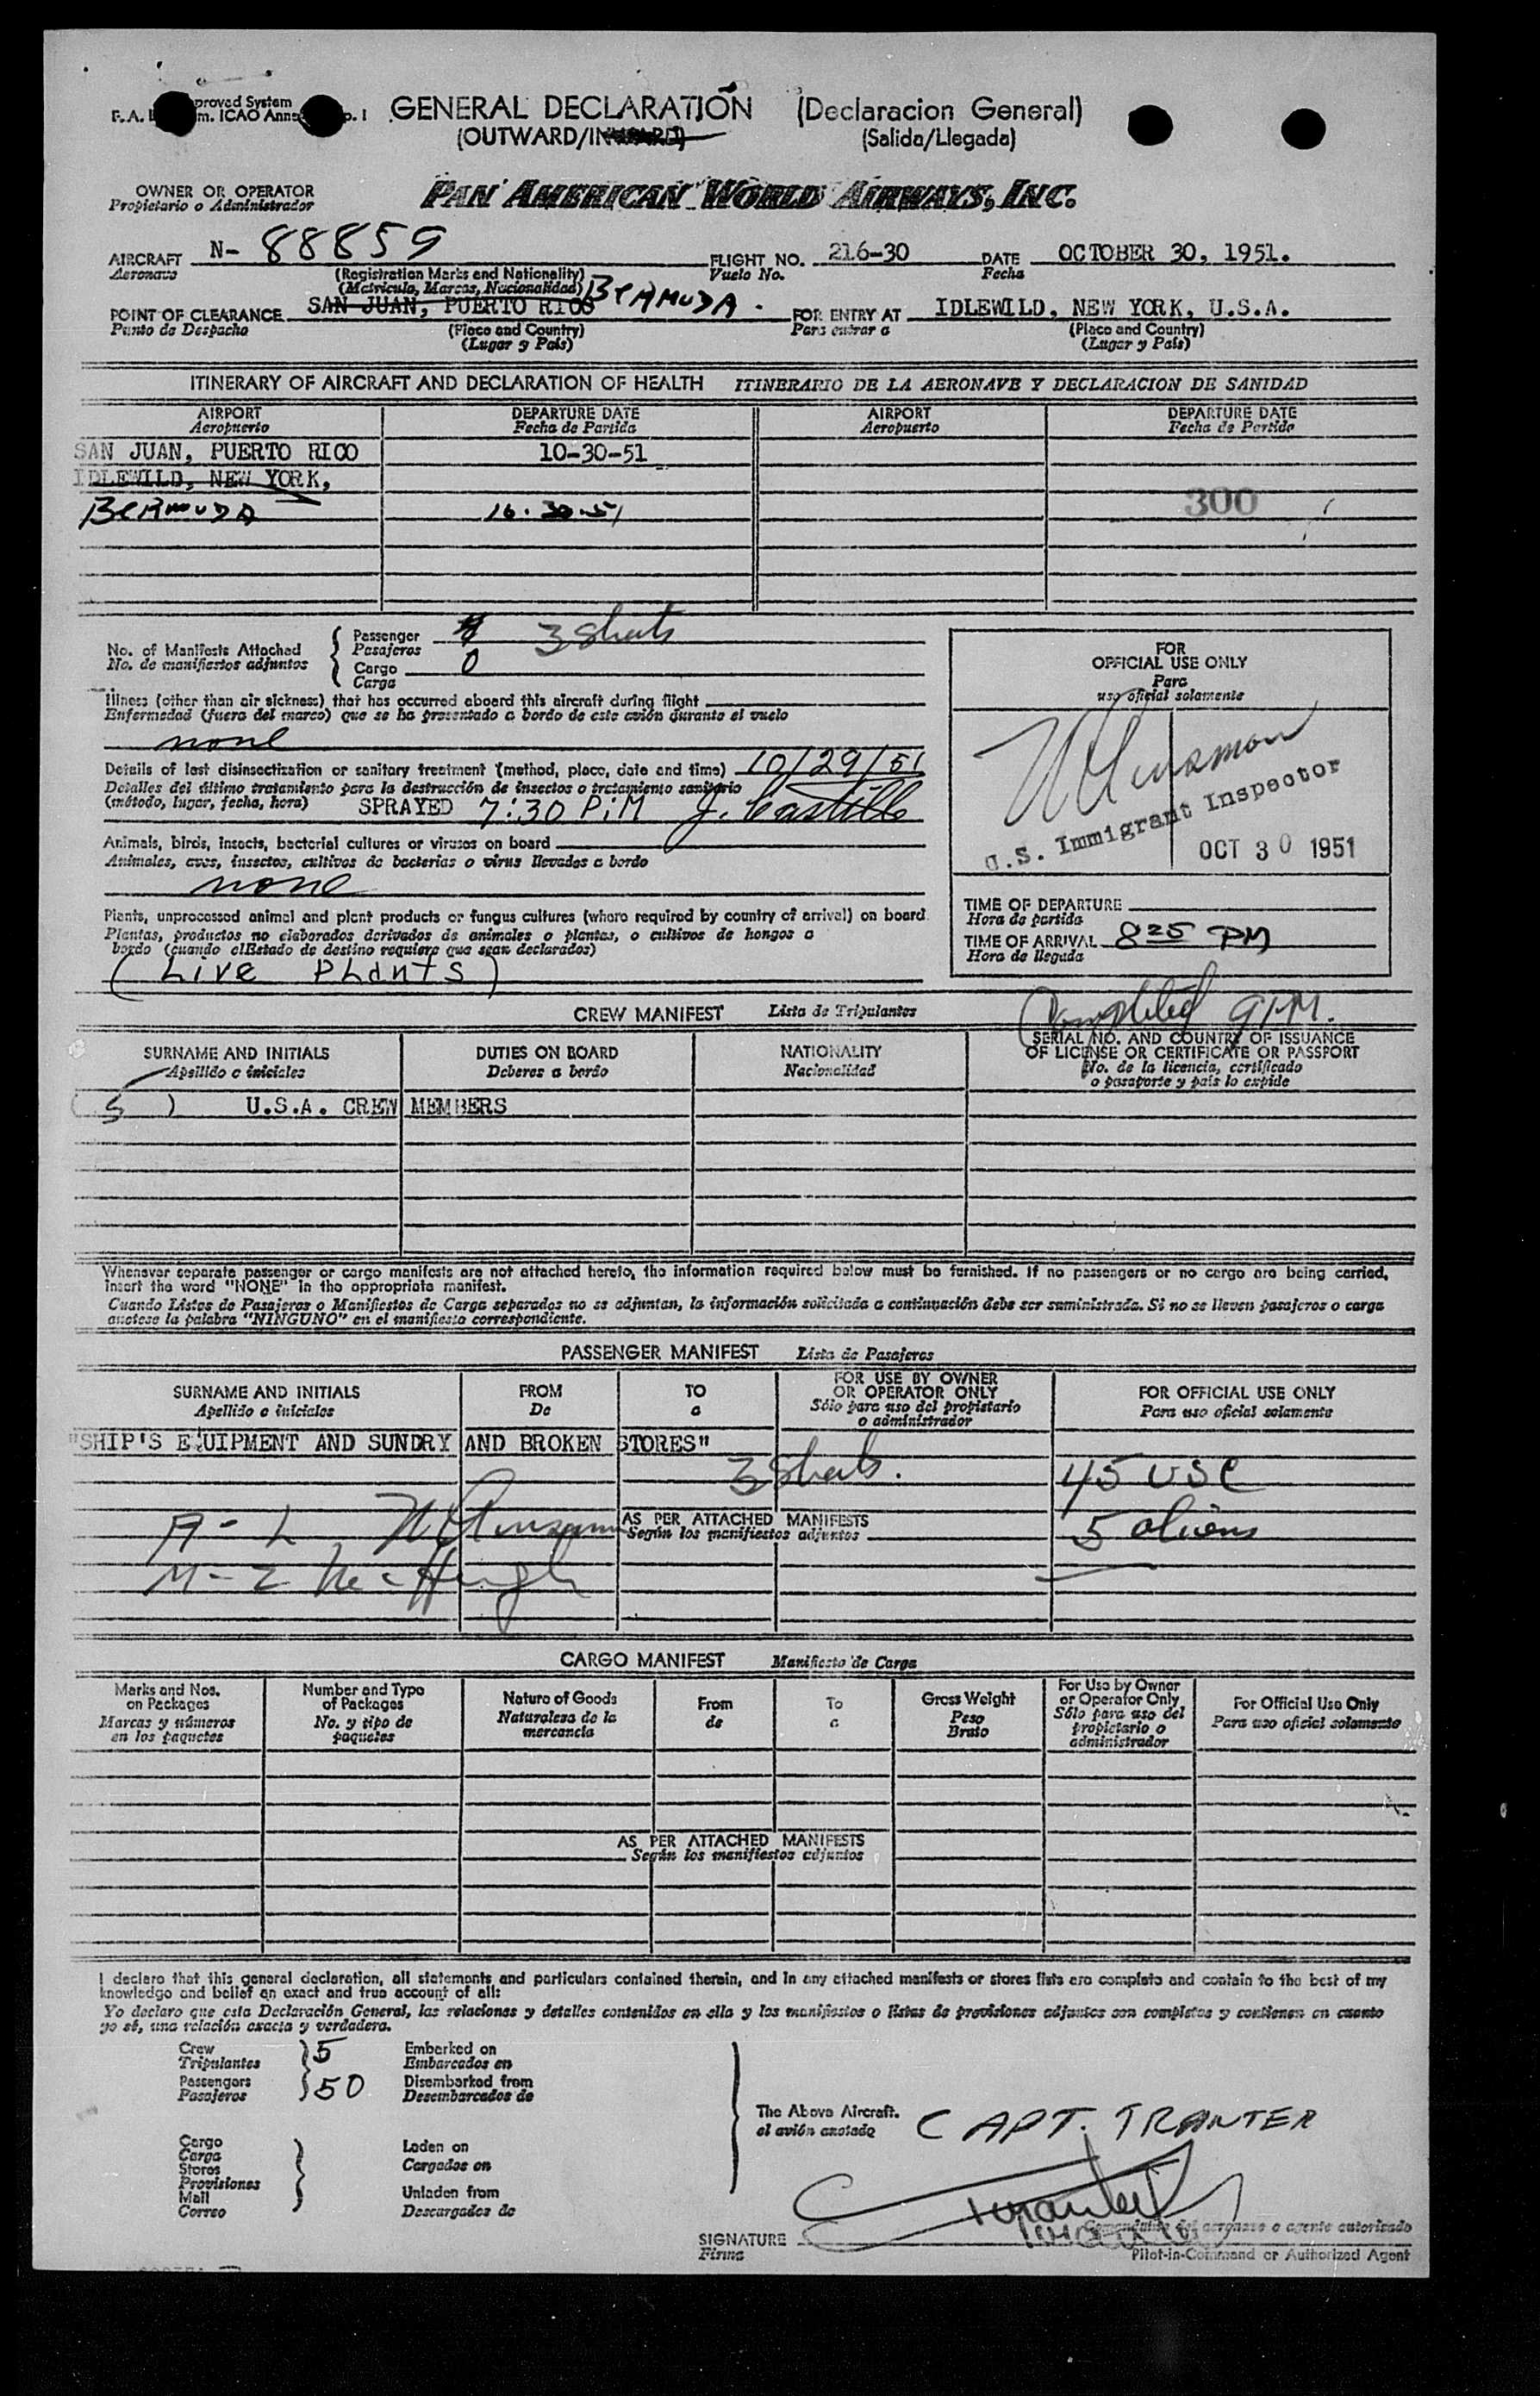 GENERAL DECLARATION (Declaracion General)
(OUTWARD/INWARD) (Salida/Llegada)
OWNER OR OPERATOR PAN AMERICAN WORLD AIRWAYS, INC.
Propietario o Administrador
AIRCRAFT N- 88859 FLIGHT NO. 216-30 DATE OCTOBER 30, 1951.
Aeronave (Registration Marks and Nationality) Vuelo No. Fecha
(Matricula, Marcas, Nacionalidad)
POINT OF CLEARANCE SAN JUAN, PUERTO RICO BERMUDA. FOR ENTRY AT IDLEWILD, NEW YORK, U.S.A.
Punto de Despacho (Place and Country) Para entrar a (Place and Country)
(Lugar y País) (Lugar y País)
ITINERARY OF AIRCRAFT AND DECLARATION OF HEALTH ITINERARIO DE LA AERONAVE Y DECLARACION DE SANIDAD
AIRPORT DEPARTURE DATE AIRPORT DEPARTURE DATE
Aeropuerto Fecha de Partida Aeropuerto Fecha de Partida
SAN JUAN, PUERTO RICO 10-30-51
IDLEWILD, NEW YORK,
BERMUDA 10-30-51 300
No. of Manifests Attached Passenger 3 Sheets
No. de manifiestos adjuntos Pasajeros
Cargo 0
Carga
Illness (other than air sickness) that has occurred aboard this aircraft during flight
Enfermedad (fuera del mareo) que se ha presentado a bordo de este avión durante el vuelo
none
Details of last disinsectization or sanitary treatment (method, place, date and time) 10/29/51
Detalles del último tratamiento para la destrucción de insectos o tratamiento sanitario
(método, lugar, fecha, hora) SPRAYED 7:30 P.M J. Castillo
Animals, birds, insects, bacterial cultures or viruses on board
Animales, aves, insectos, cultivos de bacterias o virus llevados a bordo
none
Plants, unprocessed animal and plant products or fungus cultures (where required by country of arrival) on board
Plantas, productos no elaborados derivados de animales o plantas, o cultivos de hongos a
bordo (cuando el Estado de destino requiere que sean declarados)
(Live PLants)
FOR
OFFICIAL USE ONLY
Para
uso oficial solamente
U.S. Immigrant Inspector
OCT 30 1951
TIME OF DEPARTURE
Hora de partida
TIME OF ARRIVAL 8 25 PM
Hora de llegada
Completed 9 PM.
CREW MANIFEST Lista de Tripulantes
SURNAME AND INITIALS DUTIES ON BOARD NATIONALITY SERIAL NO. AND COUNTRY OF ISSUANCE
OF LICENSE OR CERTIFICATE OR PASSPORT
Apellido e iniciales Deberes a bordo Nacionalidad No. de la licencia, certificado
o pasaporte y país lo expide
( 5 ) U.S.A. CREW MEMBERS
Whenever separate passenger or cargo manifests are not attached hereto, the information required below must be furnished. If no passengers or no cargo are being carried,
insert the word "NONE" in the appropriate manifest.
Cuando Listas de Pasajeros o Manifiestos de Carga separados no se adjuntan, la información solicitada a continuación debe ser suministrada. Si no se lleven pasajeros o carga
anotese la palabra "NINGUNO" en el manifiesto correspondiente.
PASSENGER MANIFEST Lista de Pasajeros
SURNAME AND INITIALS FROM TO FOR USE BY OWNER OR OPERATOR ONLY FOR OFFICIAL USE ONLY
Apellido e iniciales De a Sólo para uso del propietario o administrador Para uso oficial solamente
"SHIP'S EQUIPMENT AND SUNDRY AND BROKEN STORES"
3 Sheets. 45 USC
A - L AS PER ATTACHED MANIFESTS 5 aliens
Según los manifiestos adjuntos
M - Z McHugh
CARGO MANIFEST Manifiesto de Carga
Marks and Nos. on Packages Number and Type of Packages Nature of Goods From To Gross Weight For Use by Owner or Operator Only For Official Use Only
Marcas y números en los paquetes No. y tipo de paquetes Naturaleza de la mercancia de a Peso Bruto Sólo para uso del propietario o administrador Para uso oficial solamente
AS PER ATTACHED MANIFESTS
Según los manifiestos adjuntos
I declare that this general declaration, all statements and particulars contained therein, and in any attached manifests or stores lists are complete and contain to the best of my
knowledge and belief an exact and true account of all:
Yo declaro que esta Declaración General, las relaciones y detalles contenidos en ella y los manifiestos o listas de provisiones adjuntos son completas y contienen en cuanto
yo sé, una relación exacta y verdadera.
Crew 5 Embarked on
Tripulantes Embarcados en
Passengers 50 Disembarked from
Pasajeros Desembarcados de
The Above Aircraft. CAPT. TRANTER
el avión anotado
Cargo Laden on
Carga Cargados en
Stores
Provisiones
Mail Unladen from
Correo Descargados de
SIGNATURE Tranter
Firma Comandante del aeronave o agente autorizado
Pilot-in-Command or Authorized Agent